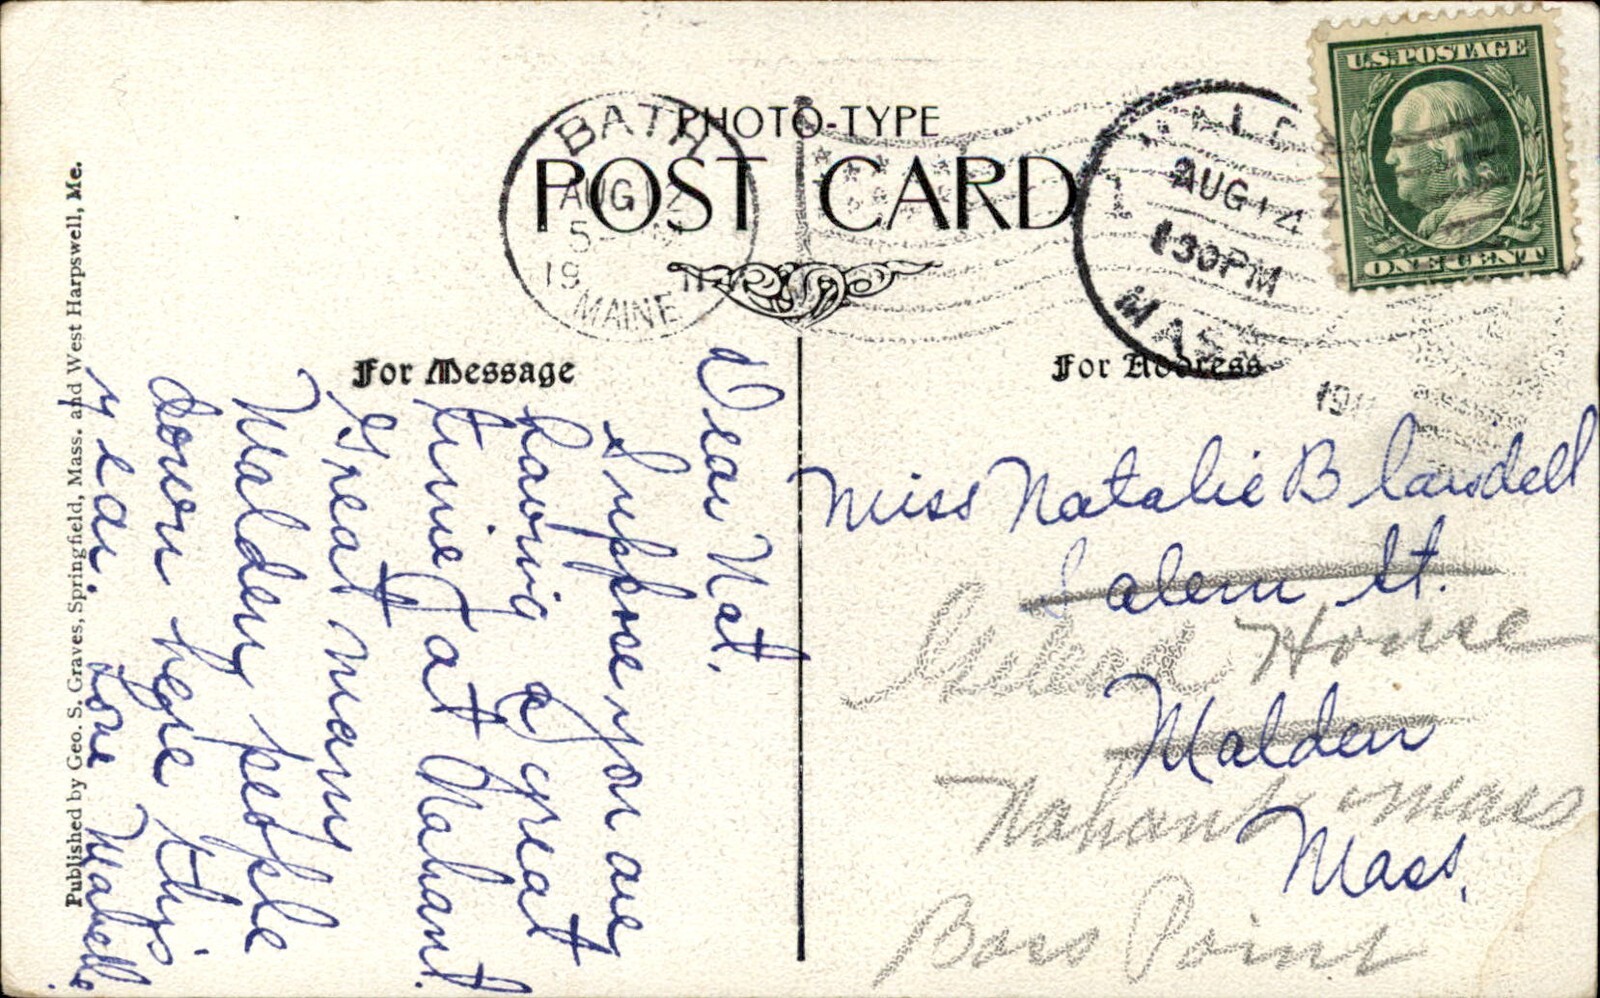 U.S. POSTAGE
ONE CENT
PHOTO-TYPE
POST CARD
BATH
AUG 12
5-
19 11
MAINE
1
AUG 14
130PM
MASS
19
For Message
For Address
Dear Nat,
Suppose you are
having a great
time at Nahant.
Great many
Malden people
down here this
year. Love Mabelle.
Miss Natalie B
Salem St.
Home
Malden
Nahant Mass
Mass.
Bass Point
Published by Geo. S. Graves, Springfield, Mass. and West Harpswell, Me.